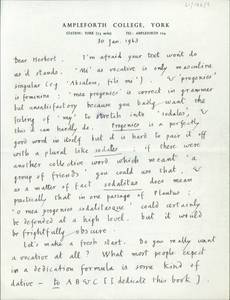 AMPLEFORTH COLLEGE, YORK
STATION: YORK (23 miles) TEL: AMPLEFORTH
30 Jan. 1963
Dear Herbert. I'm afraid your text won't do
as it stands. 'Mi' as vocative is only masculine
singular (e.g. 'Absalom, fili mi'). 'progenies'
is feminine. 'mea progenies' is correct in grammar
but unsatisfactory because you badly want the
feeling of 'my' to stretch into 'sodales',
this it can hardly do. Progenies is a perfectly
good word in itself but it is hard to pair it off
with a plural like sodales. if there were
another collective word which meant 'a
group of friends' you could use that,
as a matter of fact sodalitas does mean
practically that in one passage of Plautus.
'o mea progenies sodalitasque' could certainly
be defended at a high level. but it would
be frightfully obscure.
Let's make a fresh start. Do you really want
a vocative at all? What most people expect
in a dedication formula is some kind of
dative - to A B & C [I dedicate this book].